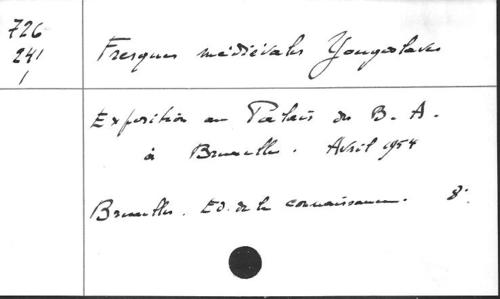 726
241
1
Fresques médiévales Yougoslaves
Exposition au Palais des B. A.
à Bruxelles. Avril 1954
Bruxelles. Ed. de la connaissance. 8°